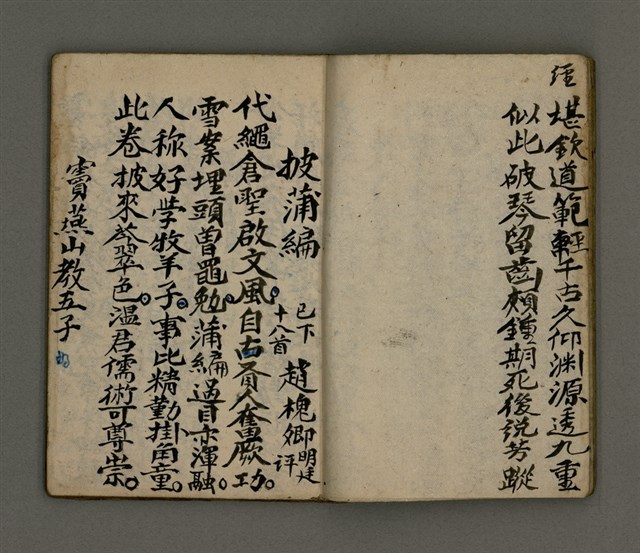 堪欽道範輊千古久仰渊源透九重
經
似此破琴留齒頰鍾期死後説芳蹤
披蒲編
已下十八首
趙槐卿明廷評
代繩倉聖啟文風自古賢人奮厥功。
雪案埋頭曾黽勉。蒲編過目亦渾融。
人称好学牧羊子。事比精勤掛角童。
此卷披來參翠色。温君儒術可尊崇。
竇燕山教五子